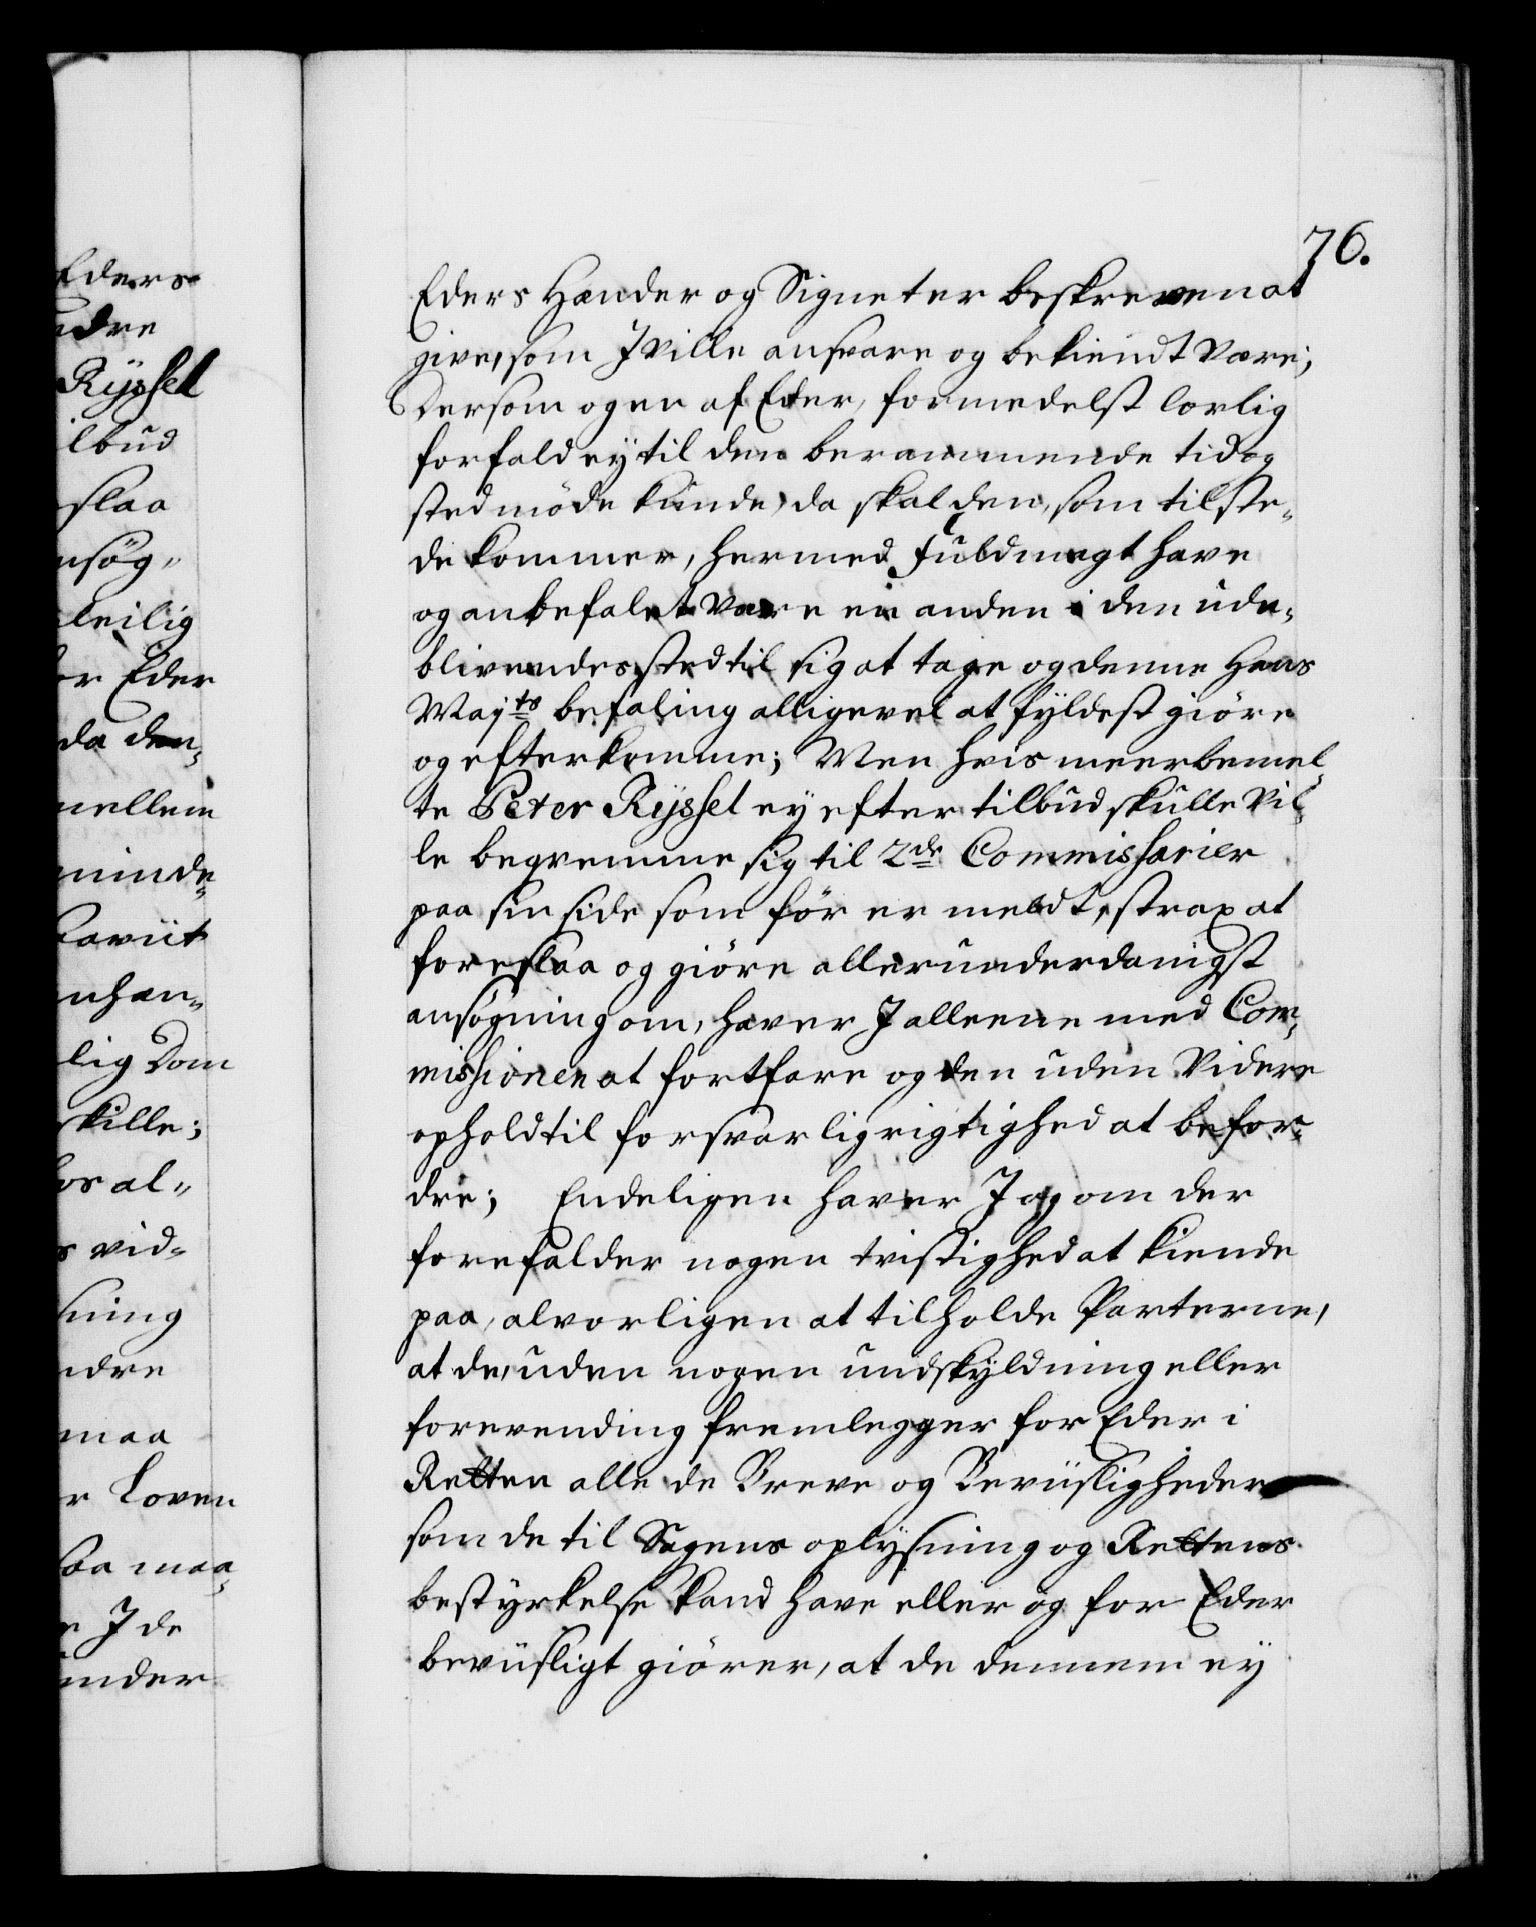 76.
Eders Hænder og Signeter beskreven at
give, som I ville ansvare og bekiendt være;
Dersom ogen af Eder, formedelst lovlig
forfald ey til den berammende tid og
sted møde kunde, da skal den, som tilste„
de kommer, hermed fuldmagt have
og anbefalet være en anden i den ude„
blivendes sted til sig at tage og denne Hans
Mayts befaling alligevel at fyldestgiøre
og efterkomme; Men hvis meerbemel„
te Peter Rÿssel ey efter tilbud skulle vil„
le beqvemme sig til 2de Commissarier
paa sin side som før er meldt, strax at
foreslaa og giøre allerunderdanigst
ansøgning om, haver I alleene med Com„
missionen at fortfare og den uden videre
ophold til forsvarlig rigtighed at befor„
dre; Endeligen haver I og om der
forefalder nogen tvistighed at kiende
paa, alvorligen at tilholde Parterne,
at de, uden nogen undskyldning eller
forevending fremlegger for Eder i
Retten alle de Breve og Beviisligheder
som de til Sagens oplysning og Rettens
bestyrkelse kand have eller og for Eder
beviisligt giører, at de dennem ey
Eders
ndre
Rÿssel
ilbud
slaa
nsøg„
leilig
or Eder
da den„
mellem
minde„
nhan„
lig Dom
skille;
os al„
s vid„
sning
ndre
maa
r Loven
saa maa„
e I de
under